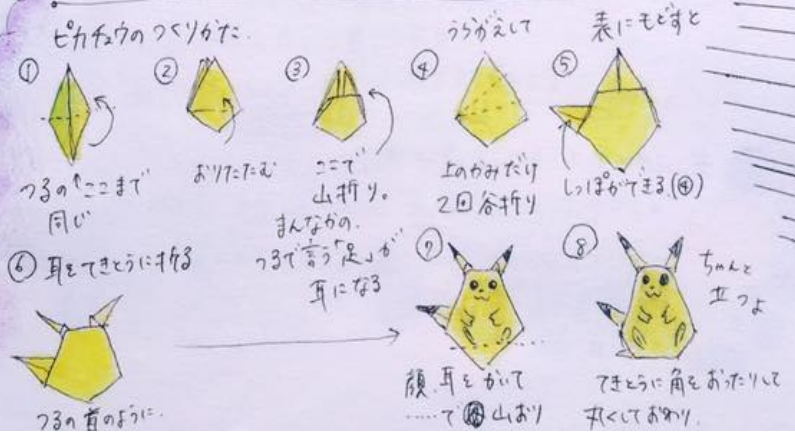 ピカチュウのつくりかた.
①
つるの↑ここまで
同じ
②
おりたたむ
③
ここで
山折り。
まんなかの.
つるで言う「足」が
耳になる
うらがえして
④
上のかみだけ
2回谷折り
表にもどすと
⑤
しっぽができる.(④)
⑥ 耳をてきとうに折る
つるの首のように.
⑦
顔.耳をかいて
……で 山おり
⑧
ちゃんと
立つよ
てきとうに角をおったりして
丸くしておわり.